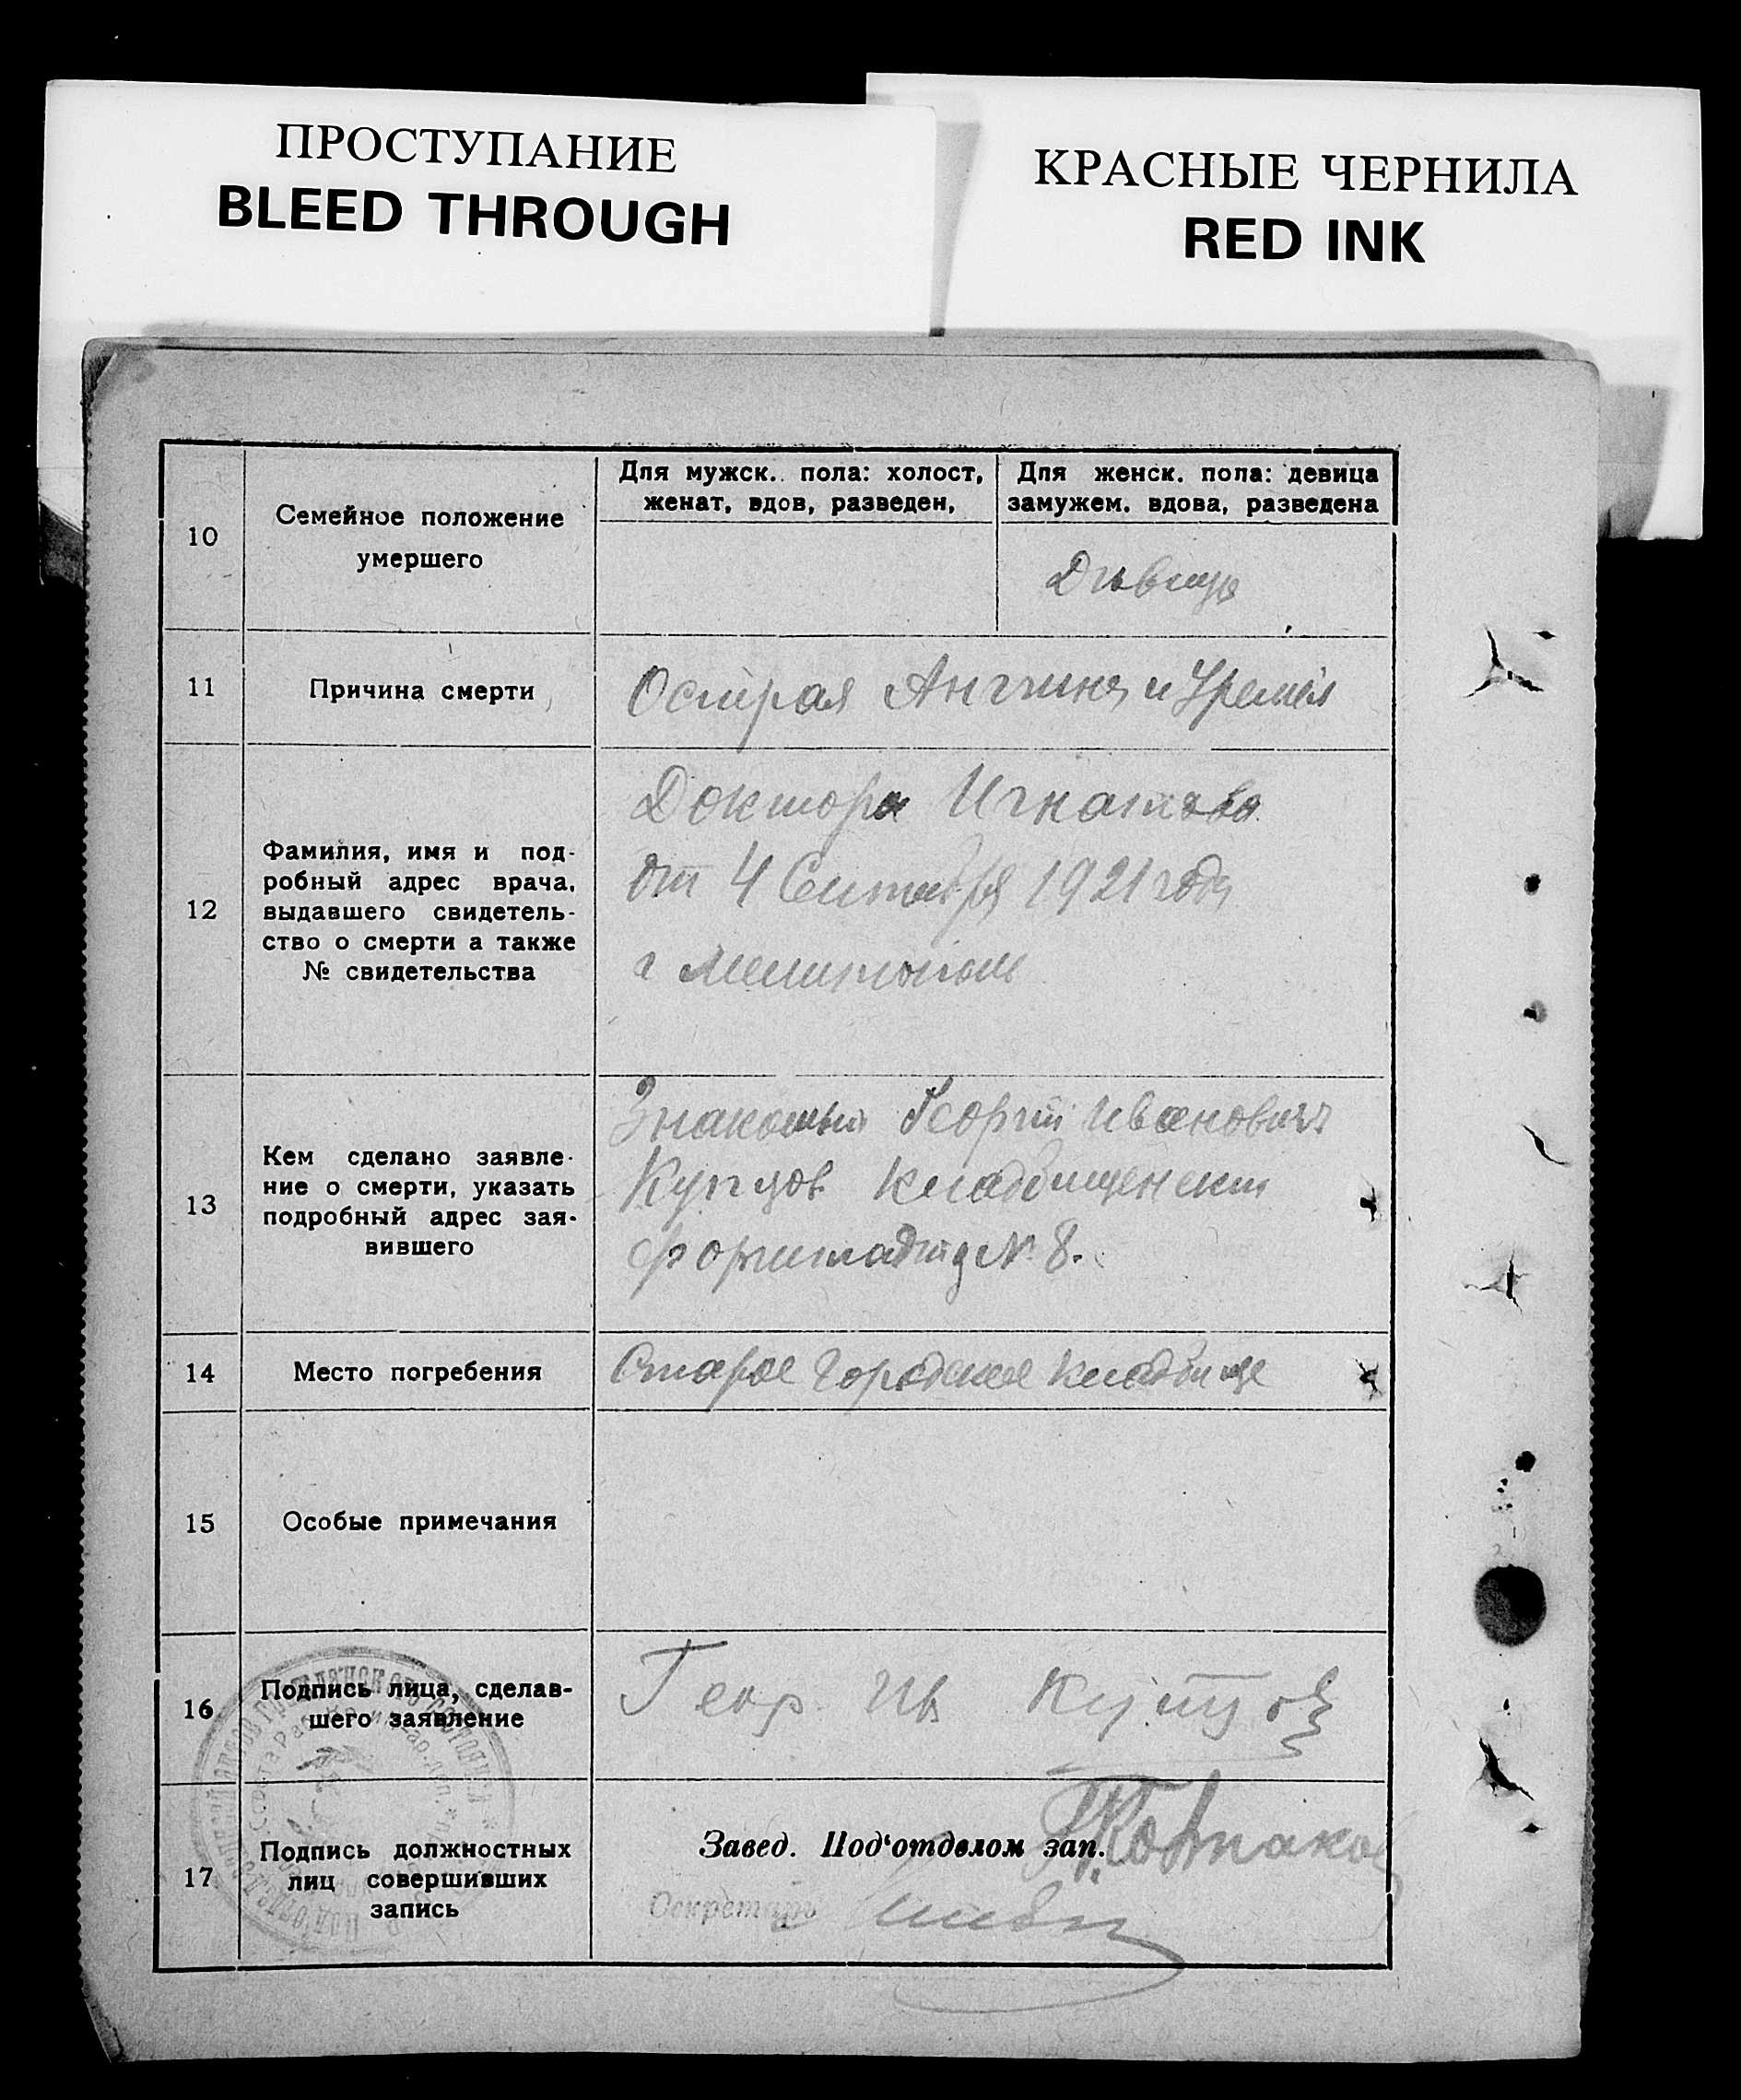 ПРОСТУПАНИЕ
BLEED THROUGH
КРАСНЫЕ ЧЕРНИЛА
RED INK
10
Семейное положение
умершего
Для мужск. пола: холост,
женат, вдов, разведен,
Для женск. пола: девица
замужем. вдова, разведена
Дивица
11
Причина смерти
Острая Ангина и Уремия
12
Фамилия, имя и под-
робный адрес врача,
выдавшего свидетель-
ство о смерти а также
№ свидетельства
Доктора Игнатова
от 4 Сентября 1921 года
г Мелитополь
13
Кем сделано заявле-
ние о смерти, указать
подробный адрес зая-
вившего
Знакомый Георгий Иванович
Купцов Кладбищенский
№ 8.
14
Место погребения
Старое Городское Кладбище
15
Особые примечания
16
Подпись лица, сделав-
шего заявление
Геор Ив Купцов
17
Подпись должностных
лиц совершивших
запись
Завед. Под‘отделом зап.
Секретарь